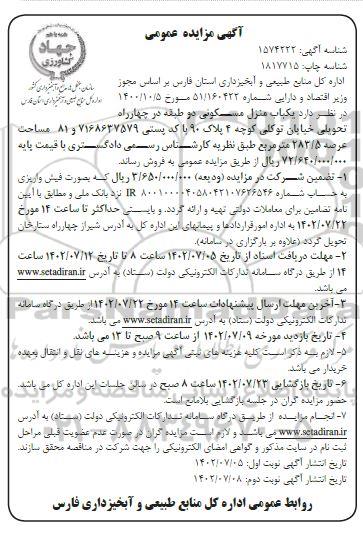 آگهی مزایده عمومی
جهاد کشاورزی
شناسه آگهی: ۱۵۷۴۲۲۲
شناسه چاپ: ۱۸۱۷۷۱۵
اداره کل منابع طبیعی و آبخیزداری استان فارس بر اساس مجوز
وزیر اقتصاد و دارایی شماره ۵۱/۱۶۰۴۲۲ مورخ ۱۴۰۰/۱۰/۵
در نظر دارد یکباب منزل مسکونی دو طبقه در چهارراه
تحویلی خیابان توکلی کوچه ۴ پلاک ۹۰ با کد پستی ۷۱۶۸۶۳۷۵۷۹ و ۸۱ مساحت
عرصه ۲۸۳/۵ مترمربع طبق نظریه کارشناس رسمی دادگستری با قیمت پایه
۷۲/۶۴۰/۰۰۰/۰۰۰ ریال از طریق مزایده عمومی به فروش رساند.
۱- تضمین شرکت در مزایده (ودیعه) ۳/۶۵۰/۰۰۰/۰۰۰ ریال که بصورت فیش واریزی
به حساب شماره IR ۸۰۰۱۰۰۰۰۴۰۵۸۰۴۲۱۰۷۶۲۶۵۴۶ نزد بانک ملی و مطابق با آیین
نامه تضامین برای معاملات دولتی تهیه و ارائه گردد. و بایستی حداکثر تا ساعت ۱۴ مورخ
۱۴۰۲/۰۷/۲۲ به اداره امورقراردادها و پیمانهای این اداره کل به آدرس شیراز چهارراه ستارخان
تحویل گردد (علاوه بر بارگزاری در سامانه).
۲- مهلت دریافت اسناد از تاریخ ۱۴۰۲/۰۷/۰۵ ساعت ۸ تا تاریخ ۱۴۰۲/۰۷/۱۲ ساعت
۱۴ از طریق درگاه سامانه تدارکات الکترونیکی دولت (ستاد) به آدرس www.setadiran.ir
می باشد.
۳-آخرین مهلت ارسال پیشنهادات ساعت ۱۴ مورخ ۱۴۰۲/۰۷/۲۲ از طریق درگاه سامانه
تدارکات الکترونیکی دولت (ستاد) به آدرس www.setadiran.ir می باشد.
۴- تاریخ بازدید مورخه ۱۴۰۲/۰۷/۰۹ از ساعت ۹ صبح تا ۱۳ می باشد.
۵- لازم به ذکر است کلیه هزینه های ثبتی آگهی مزایده و هزینه های نقل و انتقال بعهده
خریدار می باشد.
۶- تاریخ بازگشایی ۱۴۰۲/۰۷/۲۳ ساعت ۸ صبح در سالن جلسات این اداره کل می باشد.
حضور مزایده گران در جلسه بازگشایی بلامانع است.
۷- انجام مزایده از طریق درگاه سامانه تدارکات الکترونیکی دولت (ستاد) به آدرس
www.setadiran.ir می باشد و لازم است مزایده گران در صورت عدم عضویت قبلی مراحل
ثبت نام در سایت مذکور و گواهی امضای الکترونیکی را جهت شرکت در مناقصه محقق سازند.
تاریخ انتشار آگهی نوبت اول: ۱۴۰۲/۰۷/۰۵
تاریخ انتشار آگهی نوبت دوم: ۱۴۰۲/۰۷/۰۸
روابط عمومی اداره کل منابع طبیعی و آبخیزداری فارس